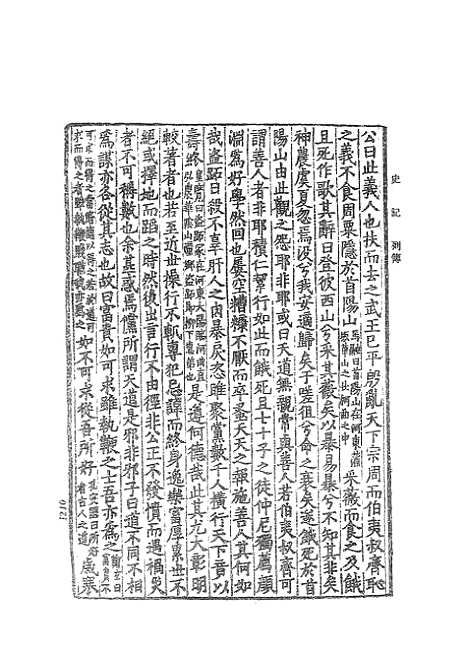 史記 列傳
公曰此義人也扶而去之武王已平殷亂天下宗周而伯夷叔齊恥
之義不食周粟隱於首陽山馬融曰首陽山在河東蒲坂華山之北河曲之中采薇而食之及餓
且死作歌其辭曰登彼西山兮采其薇矣以暴易暴兮不知其非矣
神農虞夏忽焉沒兮我安適歸矣于嗟徂兮命之衰矣遂餓死於首
陽山由此觀之怨耶非耶或曰天道無親常與善人若伯夷叔齊可
謂善人者非耶積仁絜行如此而餓死且七十子之徒仲尼獨薦顏
淵為好學然回也屢空糟糠不厭而卒蚤夭天之報施善人其何如
哉盜跖日殺不辜肝人之肉暴戾恣睢聚黨數千人橫行天下竟以
壽終皇覽曰盜跖冢在河東大陽臨河曲直弘農華陰潼鄉盜跖柳下惠弟也是遵何德哉此其尤大彰明
較著者也若至近世操行不軌專犯忌諱而終身逸樂富厚累世不
絕或擇地而蹈之時然後出言行不由徑非公正不發憤而遇禍災
者不可稱數也余甚惑焉儻所謂天道是邪非邪子曰道不同不相
為謀亦各從其志也故曰富貴如可求雖執鞭之士吾亦為之鄭玄曰富貴不
可求而得之當脩德以得之若於道可求而得之者雖執鞭賤職我亦為之如不可求從吾所好孔安國曰所好者古人之道歲寒